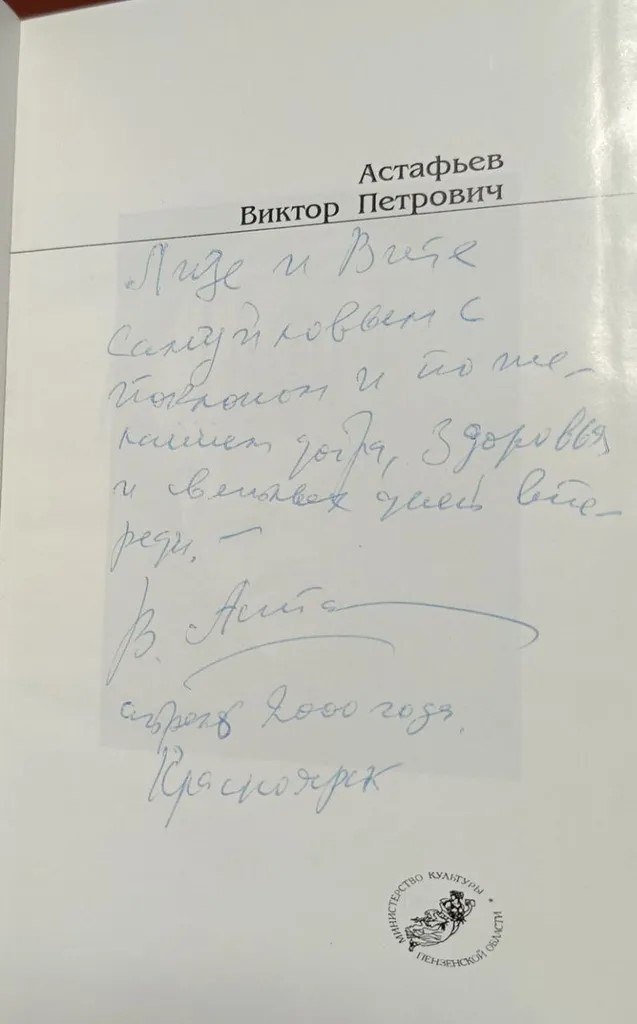 Астафьев
Виктор Петрович
Лизе и Вите
Самуйловым с
поклоном и поже-
ланием добра, здоровья
и светлых дней впе-
реди. —
В. Аста
апрель 2000 года.
Красноярск
МИНИСТЕРСТВО КУЛЬТУРЫ
ПЕНЗЕНСКОЙ ОБЛАСТИ